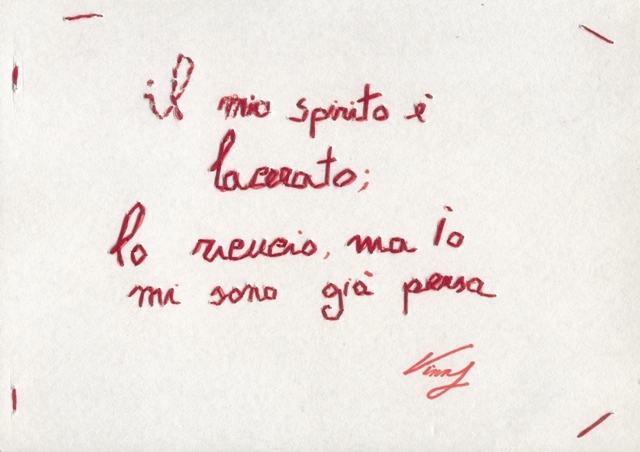 il mio spirito è
lacerato;
lo ricucio, ma io
mi sono già persa